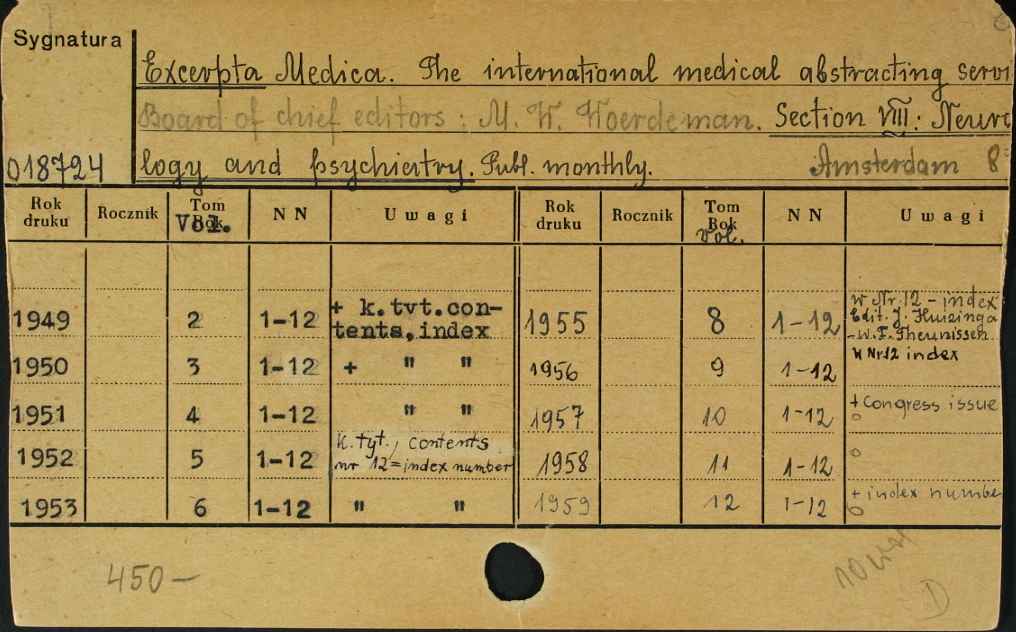 Sygnatura
Excerpta Medica. The international medical abstracting servi
Board of chief editors: M. W. Woerdeman. Section VIII: Neuro
018724 logy and psychiatry. Publ. monthly. Amsterdam 8°
Rok druku Rocznik Tom Rok Vol. NN Uwagi Rok druku Rocznik Tom Rok vol. NN Uwagi
1949 2 1-12 + k.tyt.contents,index 1955 8 1-12 w Nr. 12 - index Edit. J. Huizinga - W.F. Theunissen
1950 3 1-12 + " " 1956 9 1-12 w Nr 12 index
1951 4 1-12 " " 1957 10 1-12 + Congress issue
1952 5 1-12 k. tyt., contents nr 12 = index number 1958 11 1-12
1953 6 1-12 " " 1959 12 1-12 + index number
450 —
D